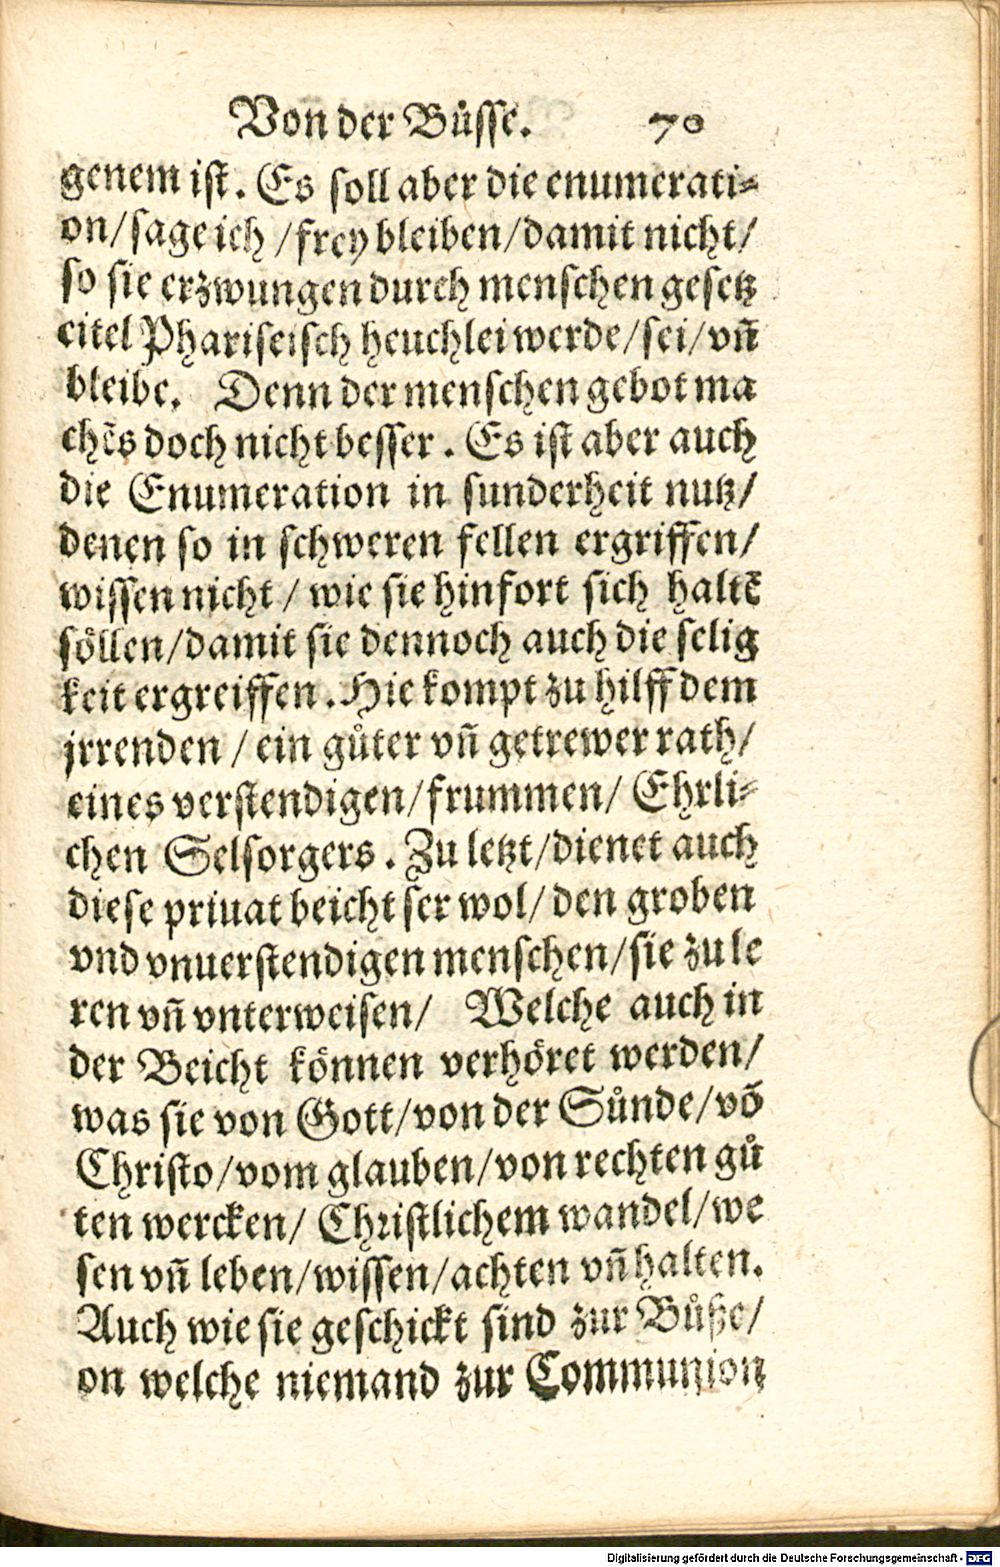 Von der Bůsse. 70
genem ist. Es soll aber die enumerati⸗
on/sage ich /frey bleiben/damit nicht/
so sie erzwungen durch menschen gesetz
eitel Phariseisch heuchlei werde/sei/vñ
bleibe. Denn der menschen gebot ma
chēs doch nicht besser. Es ist aber auch
die Enumeration in sunderheit nutz/
denen so in schweren fellen ergriffen/
wissen nicht / wie sie hinfort sich haltē
söllen/damit sie dennoch auch die selig
keit ergreiffen. Hie kompt zu hilff dem
jrrenden / ein gůter vñ getrewer rath/
eines verstendigen/frummen/ Ehrli⸗
chen Selsorgers. Zu letzt/dienet auch
diese priuat beicht ser wol/den groben
vnd vnuerstendigen menschen/sie zu le
ren vñ vnterweisen/ Welche auch in
der Beicht können verhöret werden/
was sie von Gott/von der Sůnde/vō
Christo/vom glauben/von rechten gů
ten wercken/ Christlichem wandel/we
sen vñ leben/wissen/achten vñ halten.
Auch wie sie geschickt sind zur Bůße/
on welche niemand zur Communion
Digitalisierung gefördert durch die Deutsche Forschungsgemeinschaft - DFG